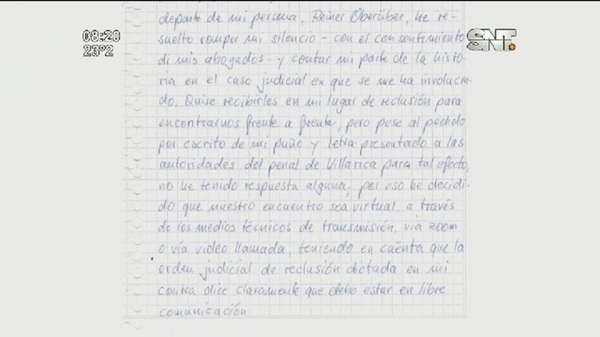 08:20
23°2
SNT
departe de mi persona, Reiner Oberüber, he re-
suelto romper mi silencio - con el consentimiento
di mis abogados - y contar mi parte de la histo-
ria en el caso judicial en que se me ha involucra-
do. Quise recibirles en mi lugar de reclusión para
encontrarnos frente a frente, pero pese al pedido
por escrito de mi puño y letra presentado a las
autoridades del penal de Villarica para tal efecto,
no he tenido respuesta alguna, por eso he decidi-
do que nuestro encuentro sea virtual, a través
de los medios técnicos de transmisión, vía zoom
o vía video llamada, teniendo en cuenta que la
orden judicial de reclusión dictada en mi
contra dice claramente que debo estar en libre
comunicación